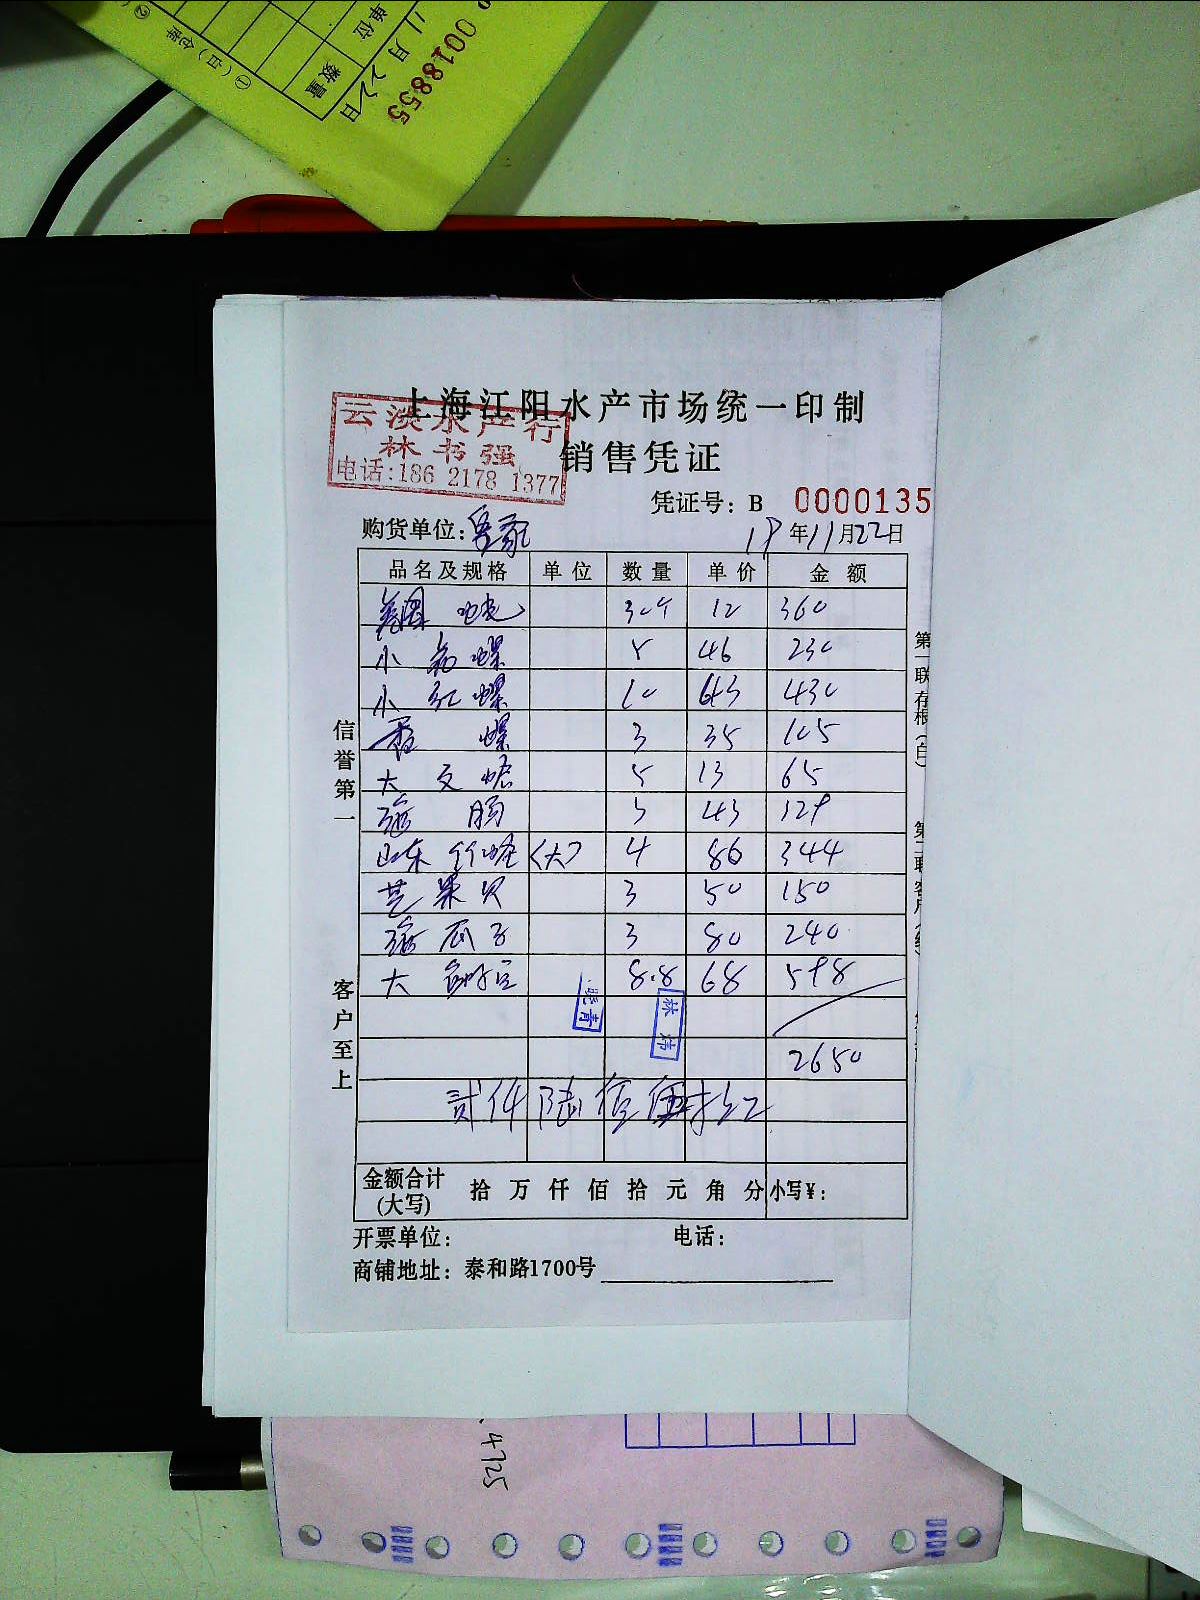 0018855
单位
11月22日
数量
①(白)仓库
②
上海江阳水产市场统一印制
云淡水产行
林书强
电话:186 2178 1377
销售凭证
凭证号: B 0000135
购货单位:
18年11月22日
品名及规格 单位 数量 单价 金额
30个 12 360
小 螺 5 46 230
小 红 螺 10 43 430
香 螺 3 35 105
大 文蛤 5 13 65
海 肠 3 43 129
山东 竹蛏 <大> 4 86 344
芒果贝 3 50 150
海瓜子 3 80 240
大 8.8 68 598
晓青
林炜
2650
贰仟陆佰伍拾元
金额合计(大写) 拾 万 仟 佰 拾 元 角 分 小写¥:
开票单位: 电话:
商铺地址: 泰和路1700号
信誉第一
客户至上
第一联 存根(白)
4725